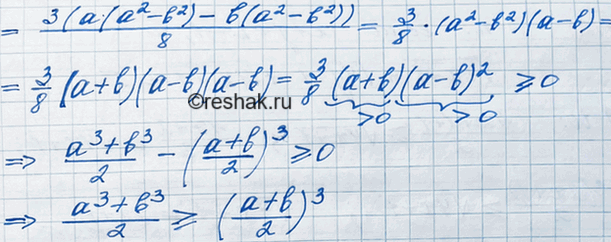 = 3(a·(a²-b²) - b(a²-b²))/8 = 3/8 · (a²-b²)(a-b) =
= 3/8 (a+b)(a-b)(a-b) = 3/8 (a+b)(a-b)² ≥ 0
>0 >0
©reshak.ru
⇒ (a³+b³)/2 - ((a+b)/2)³ ≥ 0
⇒ (a³+b³)/2 ≥ ((a+b)/2)³